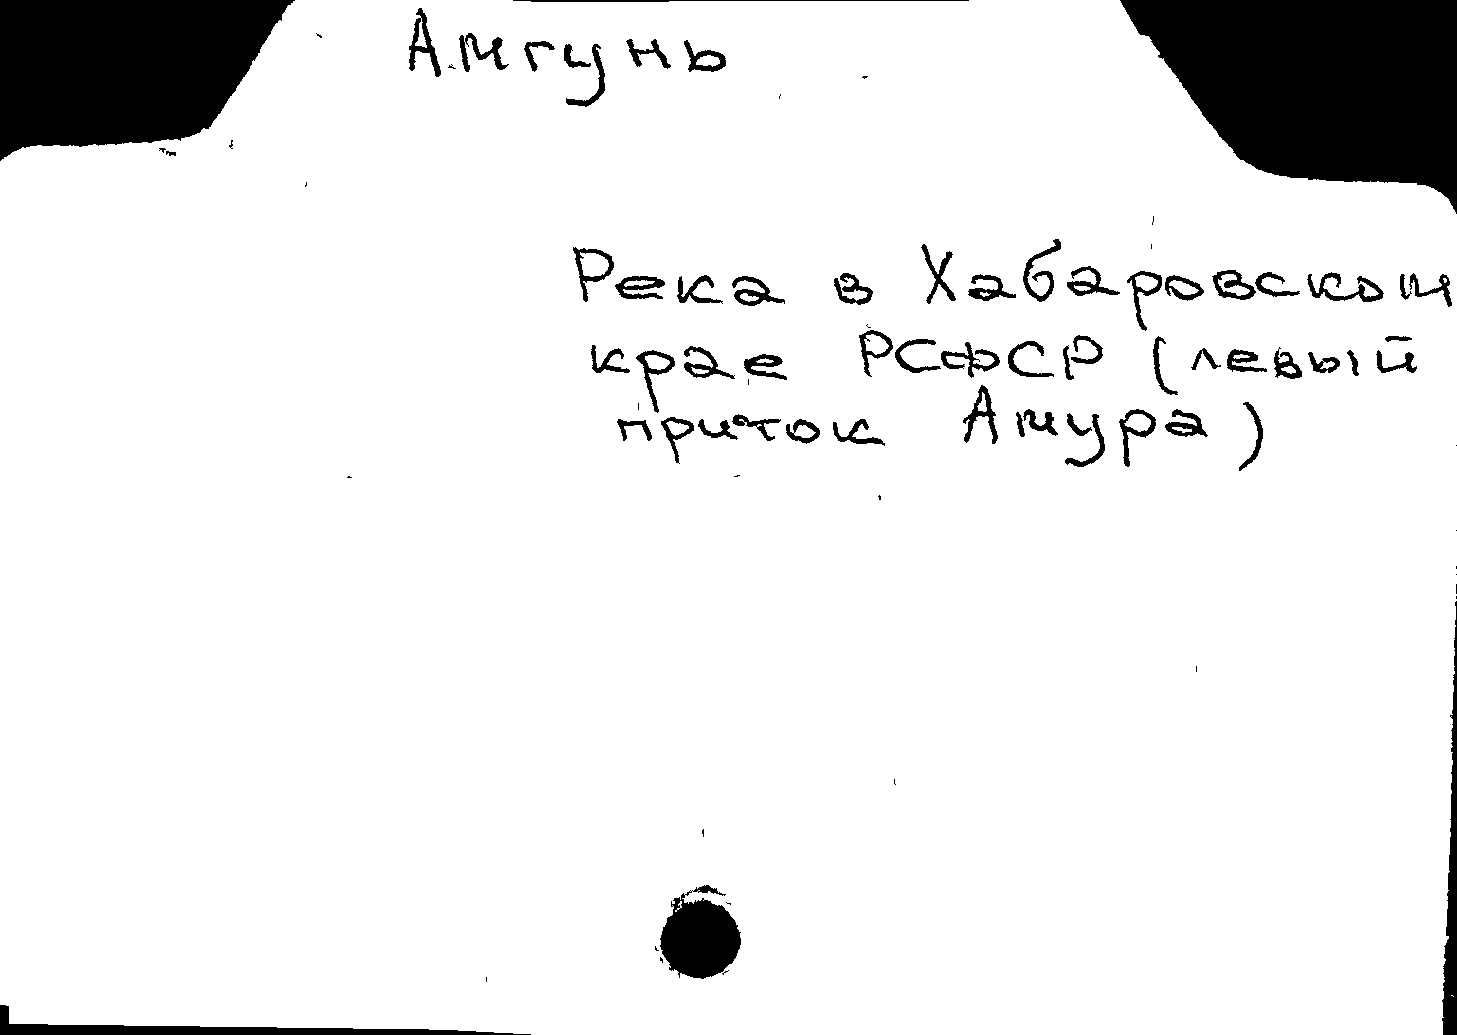 Амгунь
Река в Хабаровском
крае РСФСР (левый
приток Амура)